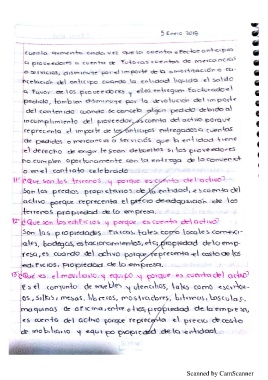 5 Enero 2018
cuenta aumenta cada vez que la cuenta efectue anticipos
a proveedores o cuenta de futuras cuentas de mercancia
o servicios, disminuye por el importe de la amortización o can-
celación del anticipo cuando la entidad liquida el saldo
a favor de los proveedores y ellos entregan facturado el
pedido, tambien disminuye por la devolucion del importe
del contenido cuando se cancela algun pedido debido al
incumplimiento del proveedor, es cuenta del activo porque
representa el importe de los anticipos entregados a cuentas
de pedidos o mercancia o servicios que la entidad tiene
el derecho de exigir le sean devueltos si los proveedores
no cumplen oportunamente con la entrega de lo conveni
o en el contrato celebrado.
11.¿Que son los terrenos y porque es cuenta del activo?
Son los predios propiedades de la entidad, es cuenta del
activo porque representa el precio de adquisición de los
terrenos propiedad de la empresa.
12.¿Que son los edificios y porque es cuenta del activo?
Son las propiedades fisicas tales como locales comerci-
ales, bodegas, estacionamientos, etc, propiedad de la emp
resa, es cuenta del activo porque representa el costo de los
edificios propiedad de la empresa.
13.¿Que es el mobiliario y equipo y porque es cuenta del activo?
Es el conjunto de muebles y utencilios, tales como escritor-
ios, sillas, mesas, libreros, mostradores, vitrinas, basculas,
maquinas de oficina, entre otros, propiedad de la empresa,
es cuenta del activo porque representa el precio de costo
de mobiliario y equipo propiedad de la entidad.
Scanned by CamScanner